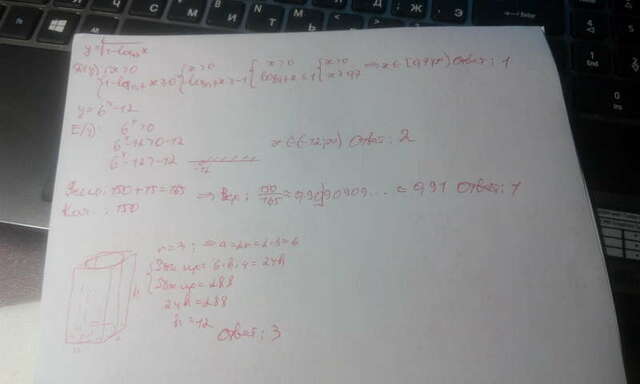 y=√1-log₀,₇x
D(y): { x>0
{ 1-log₀,₇x≥0 { x>0 { -log₀,₇x≥-1 { x>0 { log₀,₇x≤1 { x>0 { x≥0,7 ⇒ x∈[0,7;∞) Ответ: 1
y=6ˣ-12
E(y): 6ˣ>0
6ˣ-12>0-12
6ˣ-12>-12 -12 x∈(-12;∞) Ответ: 2
Число: 150+15=165 ⇒ Вер.: 150/165≈0,9090909... ≈0,91 Ответ: 1
Кач.: 150
r=3; ⇒ a=2r=2·3=6
Sбок пр=6·h·4=24h
Sбок пр=288
24h=288
h=12
Ответ: 3
h